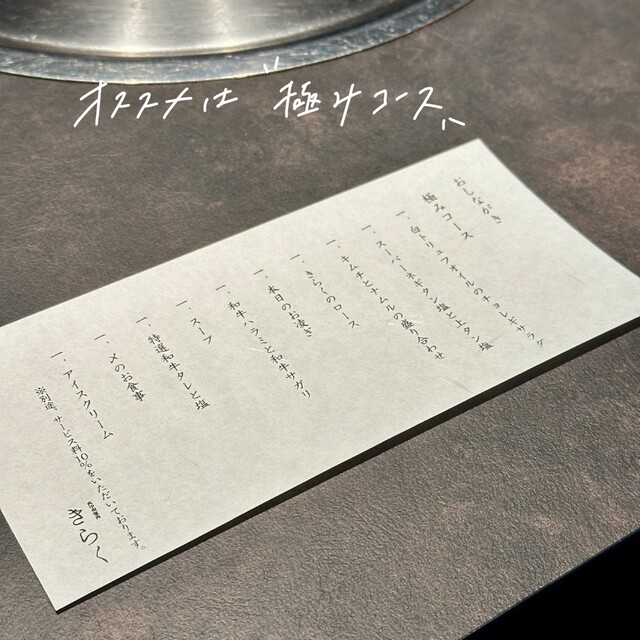 オススメは "極みコース"
おしながき
極みコース
一、白トリュフオイルのチョレギサラダ
一、スーパーネギタン塩と上タン塩
一、キムチとナムルの盛り合わせ
一、きらくのロース
一、本日のお凌ぎ
一、和牛ハラミと和牛サガリ
一、スープ
一、特選和牛タレと塩
一、〆のお食事
一、アイスクリーム
※別途、サービス料10%をいただいております。
きらく